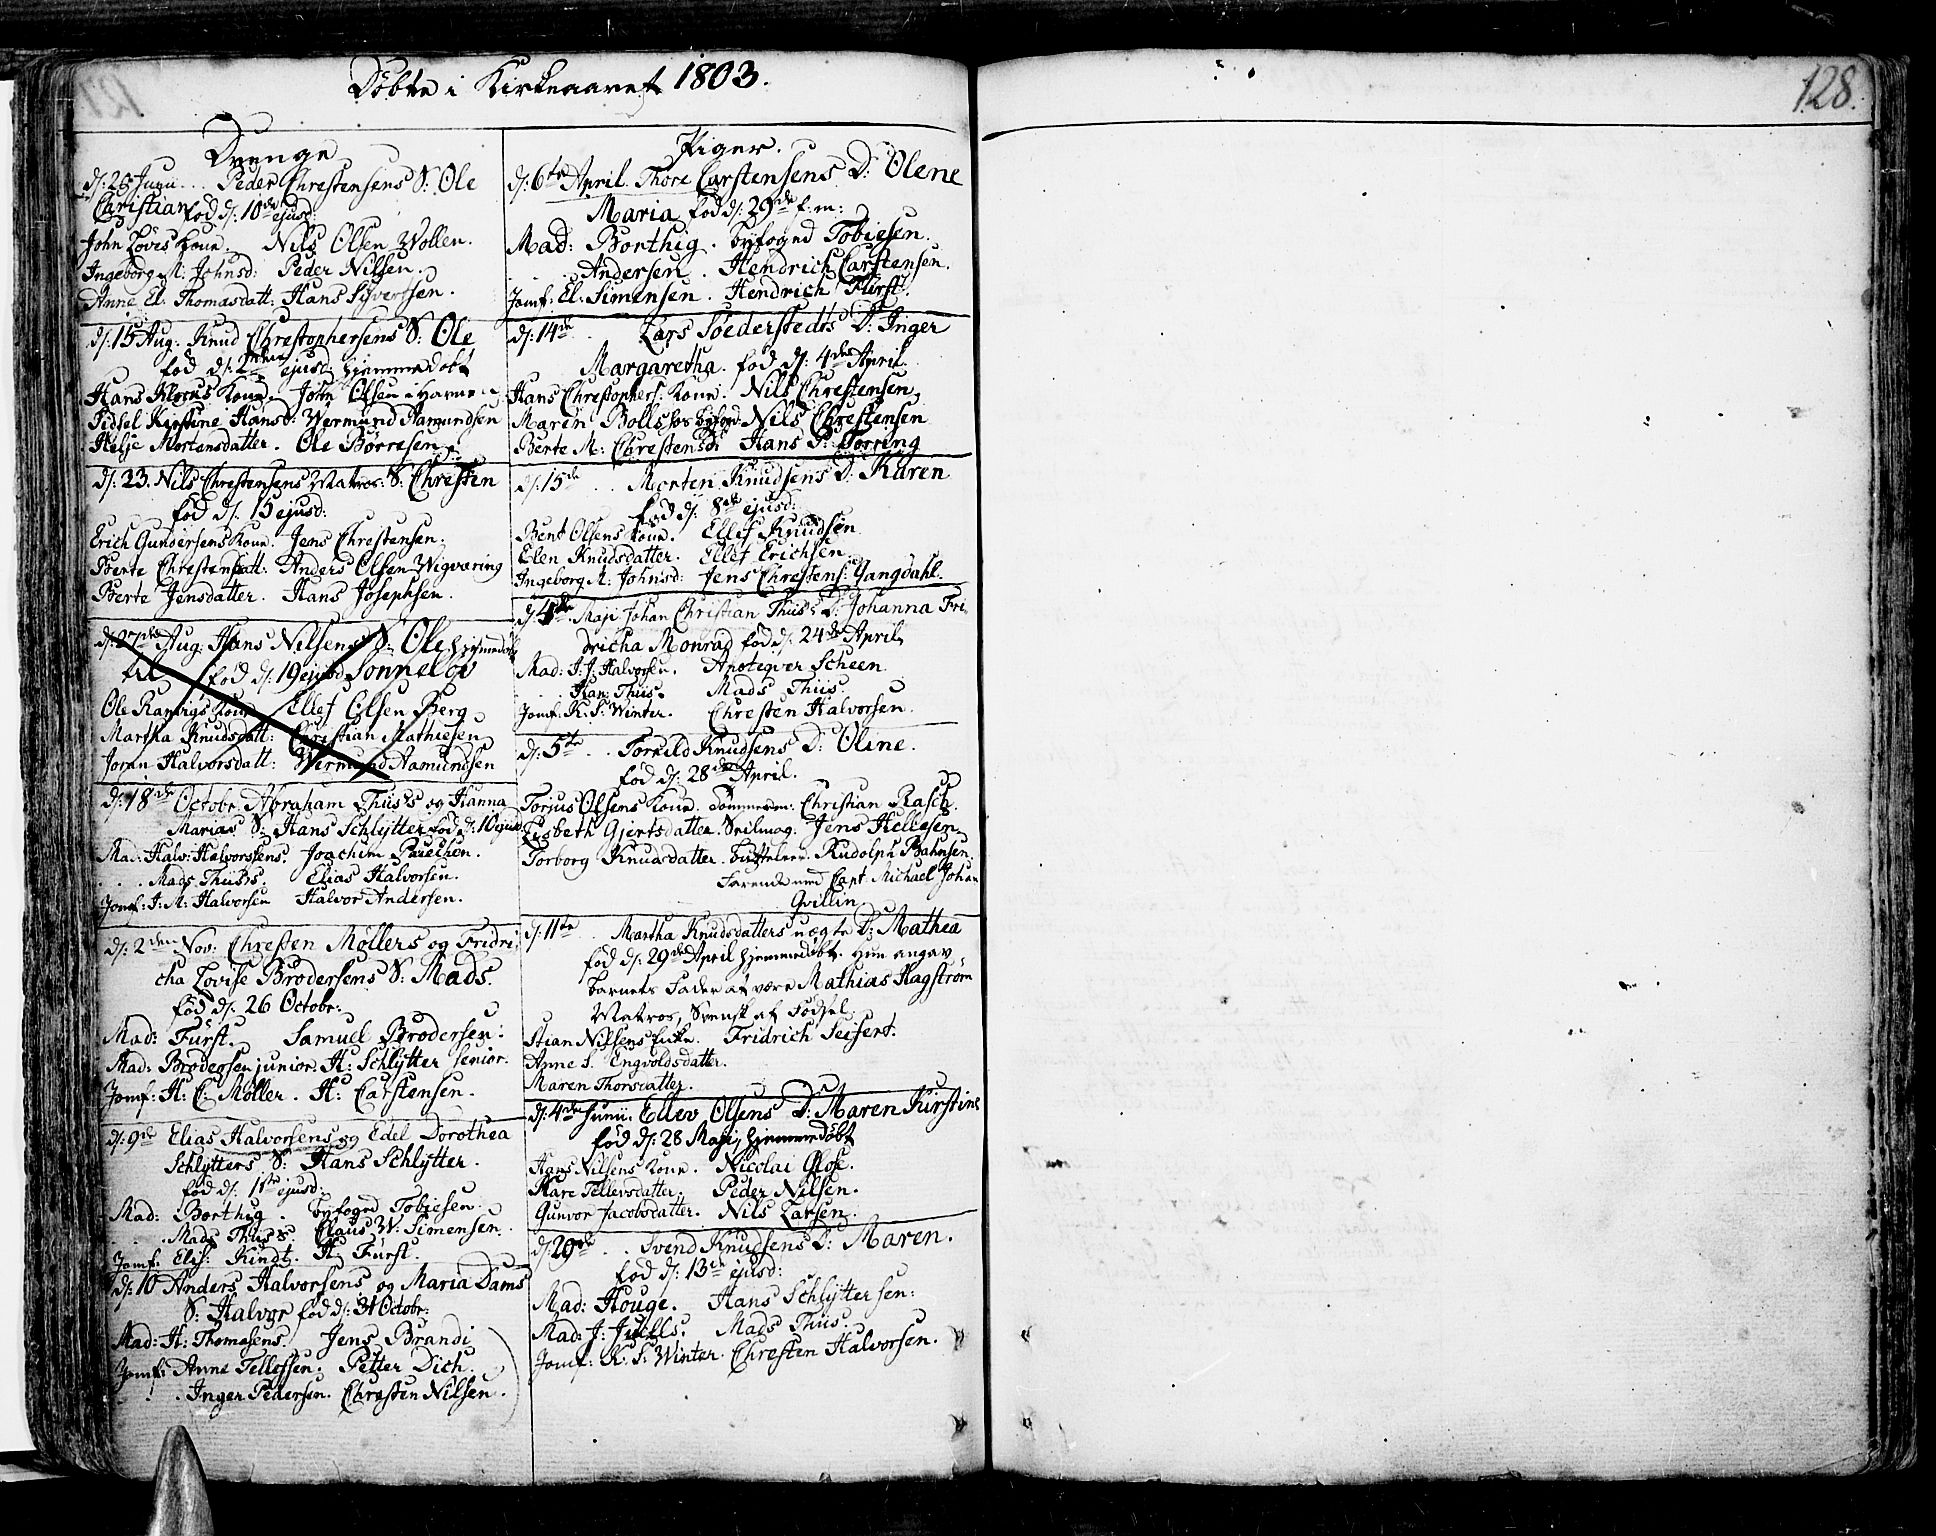 Döbte i Kirkeaaret 1803.
128.
Drenge
d: 26 Junii... Peder Chrestensens S: Ole
Christian fød d: 10de ejusd:
John Loves kone. Nils Olsen Wollen.
Ingeborg M: Johnsd: Peder Nilsen.
Anne El. Thomasdatt: Hans Syvertsen.
d: 15 Aug: Knud Chrestophersens S: Ole
fød d: 2den ejusd: hjemmedøbt
Hans Klocks Kone. John Olsen i Havne
Sidsel Kirstine Hansd: Wermund Aamundsen
Helje Mortensdatter. Ole Börresen.
d: 23. Nils Chrestensens Matros: S: Chresten
fød d: 15 ejusd:
Erich Gundersens Kone. Jens Chrestensen.
Berte Chrestensdatt: Anders Olsen Wigværing
Berte Jensdatter. Hans Josephsen.
d: 27de Aug: Hans Nilsens S: Ole hjemmedøbt
fød d: 19 ejusd Sonneløv
Ole Ranings Kone Ellef Olsen Berg
Martha Knudsdatt: Christian Mathiesen
Joran Halvorsdatt: Wermund Aamundsen
d: 18de Octobr. Abraham Thiis's og Hanna
Marias S: Hans Schlytter fød d: 10 ejusd
Mad: Halv: Halvorsens. Joachim
... Mads Thiis's. Elias Halvorsen.
Jomf: J: M: Halvorsen Halvor Andersen.
d: 2den Nov: Chresten Møllers og Fridri
cha Lovise Brodersens S: Mads.
fød d: 26 Octobr:
Mad: Fürst. Samuel Brodersen:
Mad: Brodersen junior. H: Schlytter senior.
Jomf: H: C: Møller. H: Carstensen.
d: 9de Elias Halvorsens og Edel Dorothea
Schlytters S: Hans Schlytter.
fød d: 1ste ejusd:
Mad: Borthig. byfoged Tobiesen.
... Mads Thiis's. Claus W: Simensen.
Jomf: Elis: Kindt. H: Fürst.
d: 10 Anders Halvorsens og Maria Dams
S: Halvor fød d: 31 Octobr:
Mad: H: Thomasens. Jens Brandi
Jomf: Anne Tellefsen. Petter Dich.
. . Inger Pedersen. Chresten Nilsen.
Piger.
d: 6te April. Thore Carstensens D: Olene
Maria fød d: 29de f: m:
Mad: Borthig. byfoged Tobiesen.
... Andersen. Hendrich Carstensen.
Jomf: El: Simensen. Hendrich Fürst.
d: 14de Lars Soederstedts D: Inger
Margaretha. fød d: 4de April.
Hans Chrestophers: Kone. Nils Chrestensen,
Maren Bolls hos byfoged Nils Chrestensen
Berte M: Chrestensd: Hans P: Torring
d: 15de .. Morten Knudsens D: Karen
fød d: 8de ejusd:
Bent Olsens kone. Ellef Knudsen
Elen Knudsdatter. Ellef Erichsen
Ingeborg M: Johnsd: Jens Chrestens: Yangdahl.
d: 4de Maji Johan Christian Thiis's D: Johanna Fri
dricha Monrad fød d: 24de April,
Mad: J: J: Halvorsen. Apoteqver Scheen
... Han: Thiis. Mads Thiis
Jomf: K: S: Winter. Chresten Halvorsen.
d: 5te .. Torkild Knudsens D: Oline.
fød d: 28de April.
Torjus Olsens kone. Tömmerm: Christian Rasch.
Lisbeth Gjertsdatter. Seilmag. Jens Hellesen
Torborg Knudsdatter. Rudolph Bahnsen.
Farende med Capt Michael Johan
Qvillin.
d: 11te .. Martha Knudsdatters uægte D: Mathea
fød d: 29de April hjemmedøbt. Hun angav
barnets Fader at være Mathias Hagström
Matros, Svensk af Födsel.
Stian Nilsens Enke. Fridrich Seifert.
Anne S. Engvoldsdatter.
Maren Thorsdatter.
d: 4de Junii. Ellev Olsens D: Maren Kirstine
fød d: 28 Maji, hjemmedøbt
Hans Nilsens Kone. Nicolai Glos.
Kare Tellevsdatter. Peder Nilsen.
Gunvor Jacobsdatter. Nils Larsen.
d: 29de .. Svend Knudsens D: Maren.
fød d: 13de ejusd:
Mad: Houge. Hans Schlytter sen:
Mad: J: Juills. Mads Thiis.
Jomf: K: S: Winter. Chresten Halvorsen.